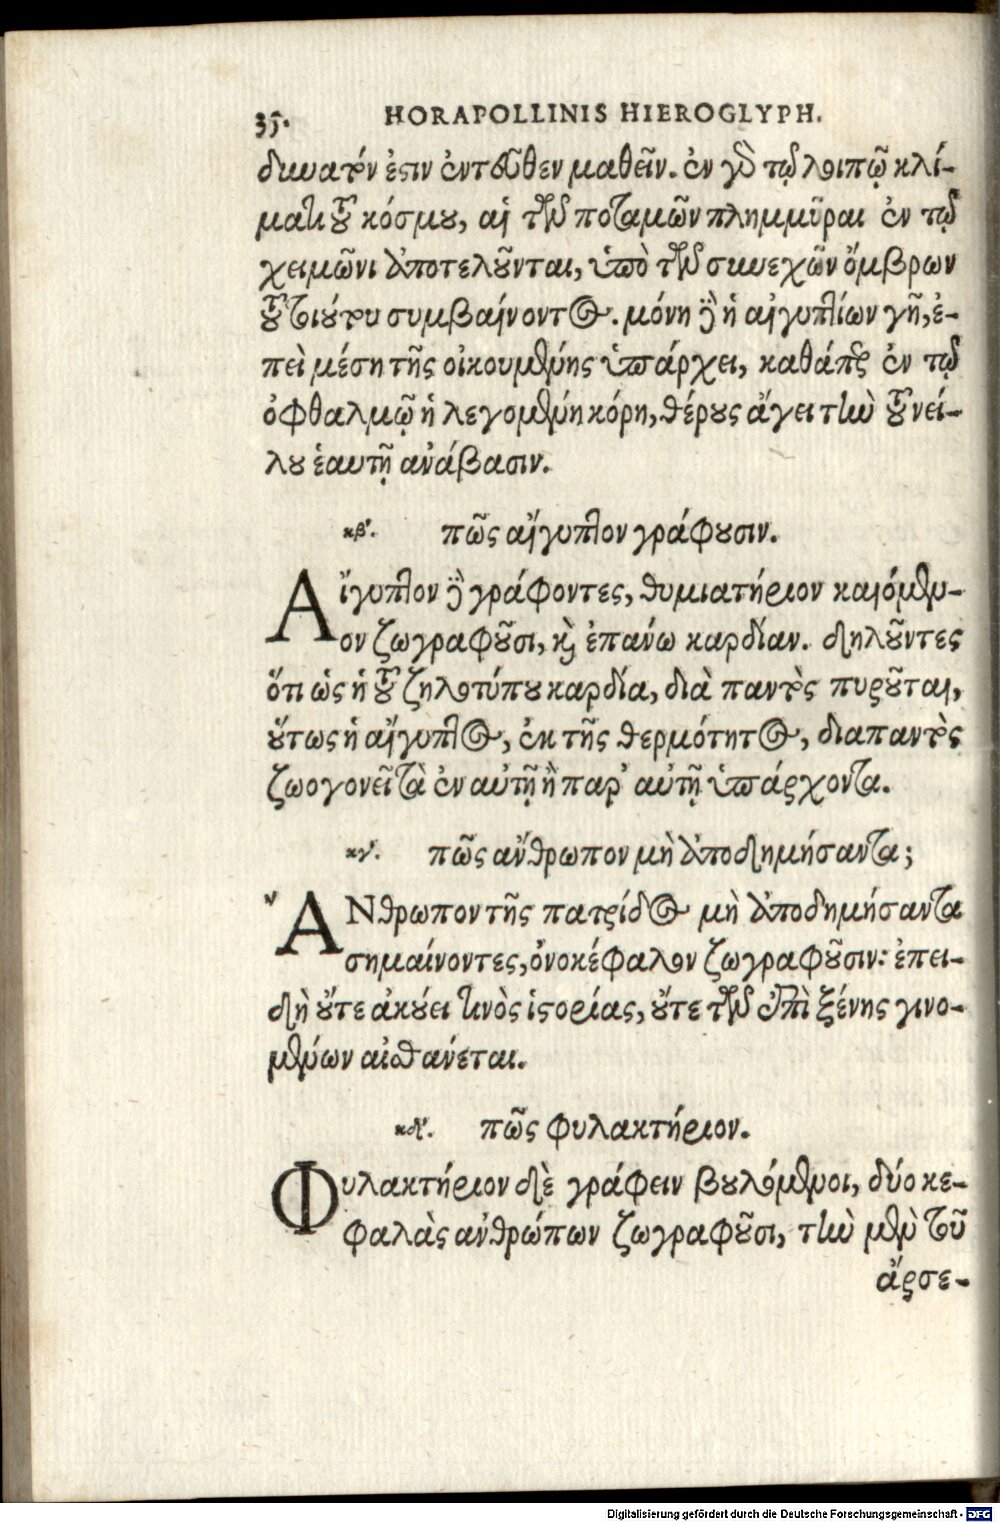 35. HORAPOLLINIS HIEROGLYPH.
δυνατόν ἐστιν ἐντεῦθεν μαθεῖν. ἐν γὸ τῷ λοιπῷ κλί-
ματι τοῦ κόσμου, αἱ τῶν ποταμῶν πλημμῦραι ἐν τῷ
χειμῶνι ἀποτελοῦνται, ὑπὸ τῶν συνεχῶν ὄμβρων
τοῦ τοιούτου συμβαίνοντος. μόνη δὲ ἡ αἰγυπτίων γῆ, ἐ-
πεὶ μέση τῆς οἰκουμένης ὑπάρχει, καθάπερ ἐν τῷ
ὀφθαλμῷ ἡ λεγομένη κόρη, θέρους ἄγει τὴν τοῦ νεί-
λου ἑαυτῇ ἀνάβασιν.
κβʹ. πῶς αἴγυπτον γράφουσιν.
Αἴγυπτον δὲ γράφοντες, θυμιατήριον καιόμεν-
ον ζωγραφοῦσι, καὶ ἐπάνω καρδίαν. δηλοῦντες
ὅτι ὡς ἡ τοῦ ζηλοτύπου καρδία, διὰ παντὸς πυροῦται,
οὕτως ἡ αἴγυπτος, ἐκ τῆς θερμότητος, διαπαντὸς
ζωογονεῖ τὰ ἐν αὐτῇ ἢ παρ’ αὐτῇ ὑπάρχοντα.
κγʹ. πῶς ἄνθρωπον μὴ ἀποδημήσαντα;
ἌΝθρωπον τῆς πατρίδος μὴ ἀποδημήσαντα
σημαίνοντες, ὀνοκέφαλον ζωγραφοῦσιν: ἐπει-
δὴ οὔτε ἀκούει τινὸς ἱστορίας, οὔτε τῶν ἐπὶ ξένης γινο-
μένων αἰσθάνεται.
κδʹ. πῶς φυλακτήριον.
Φυλακτήριον δὲ γράφειν βουλόμενοι, δύο κε-
φαλὰς ἀνθρώπων ζωγραφοῦσι, τὴν μὲν τοῦ
ἄρσε-
Digitalisierung gefördert durch die Deutsche Forschungsgemeinschaft - DFG